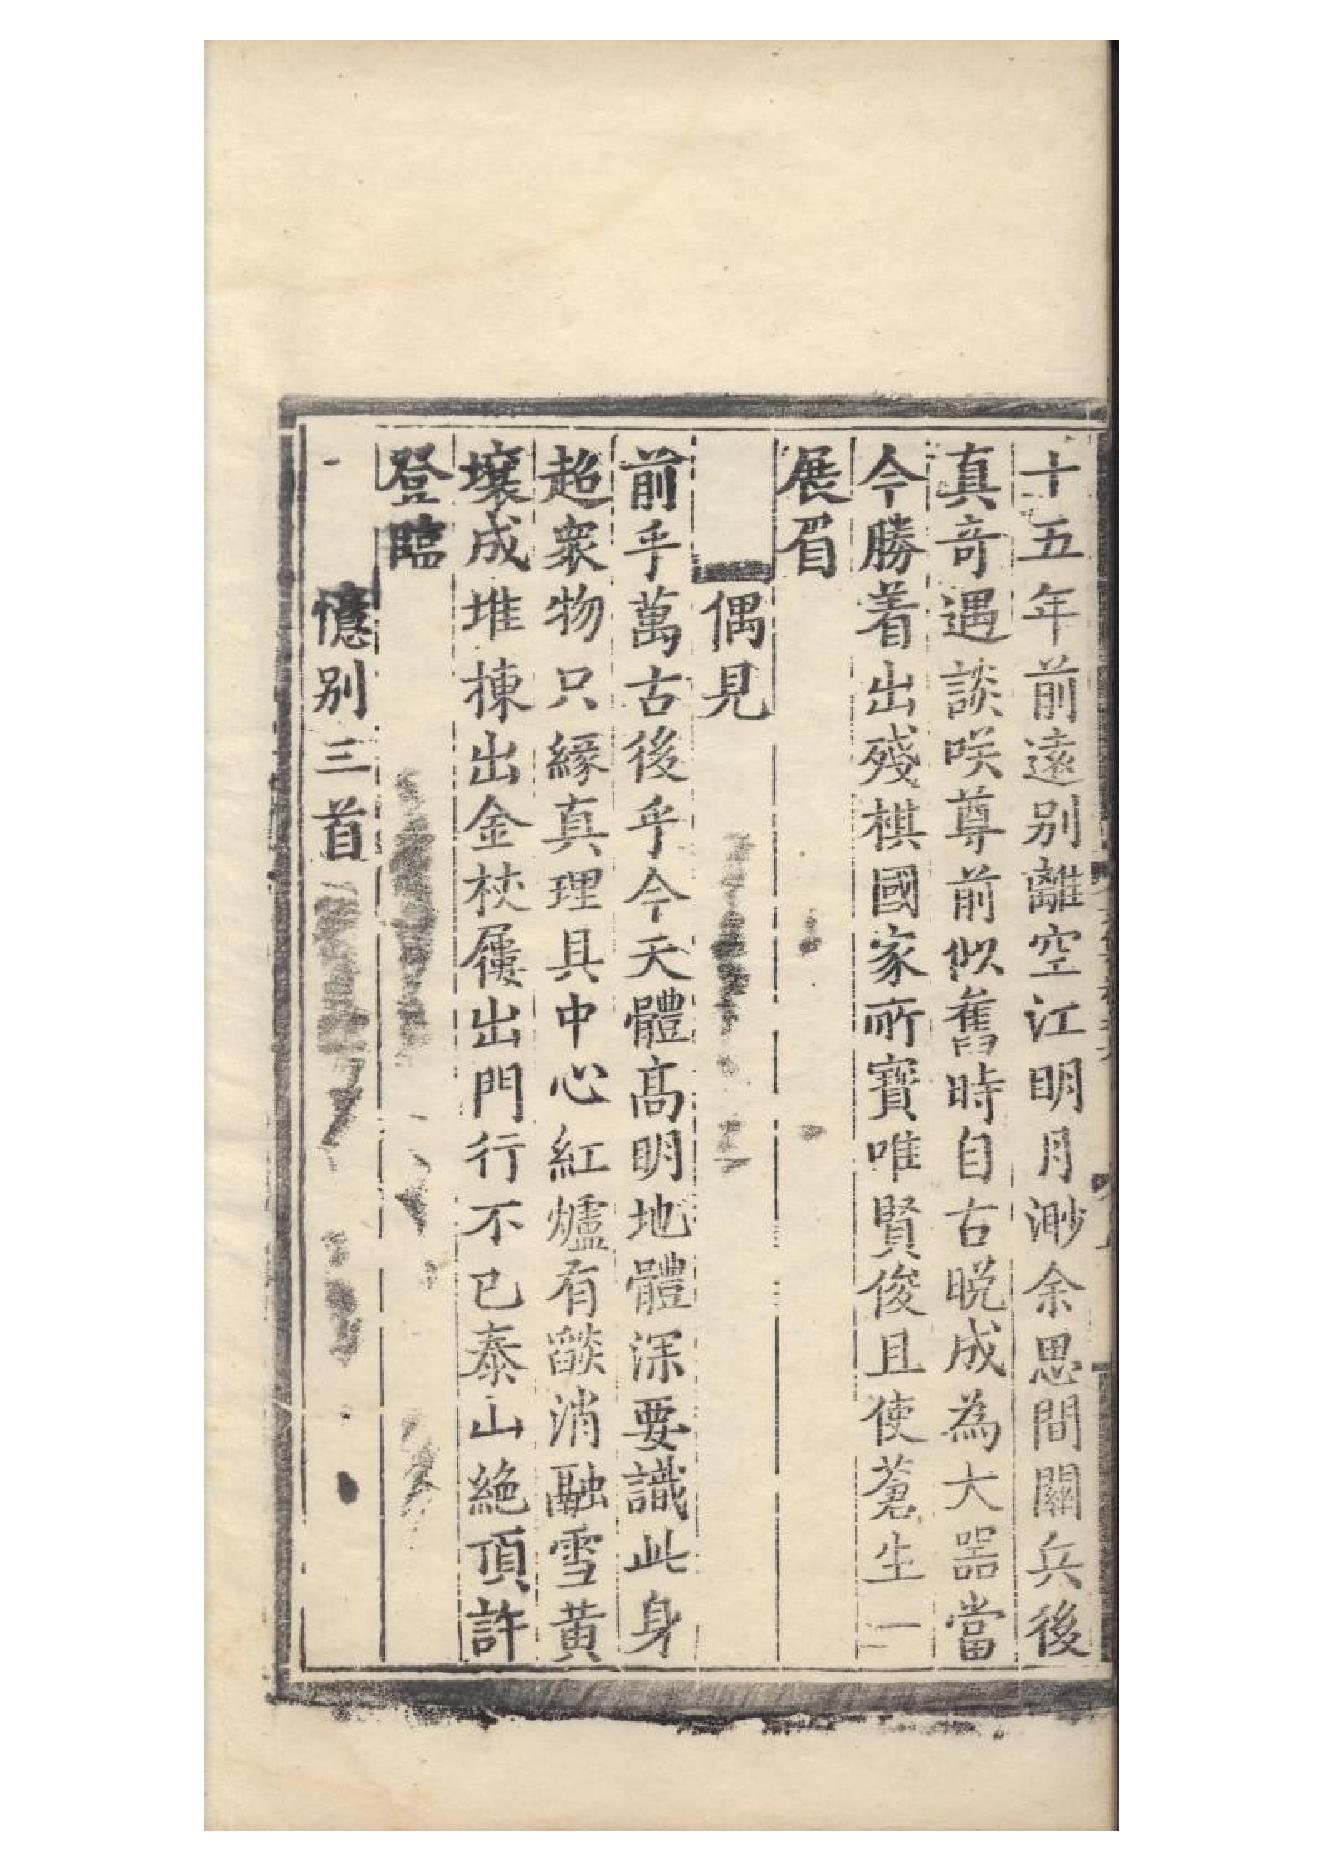 十五年前遠別離空江明月渺余思間關兵後
真奇遇談咲尊前似舊時自古晚成為大器當
今勝着出殘棋國家所寶唯賢俊且使蒼生一
展眉
偶見
前乎萬古後乎今天體高明地體深要識此身
超衆物只緣真理具中心紅爐有燄消融雪黄
壤成堆揀出金杖屨出門行不已泰山絶頂許
登臨
憶别三首